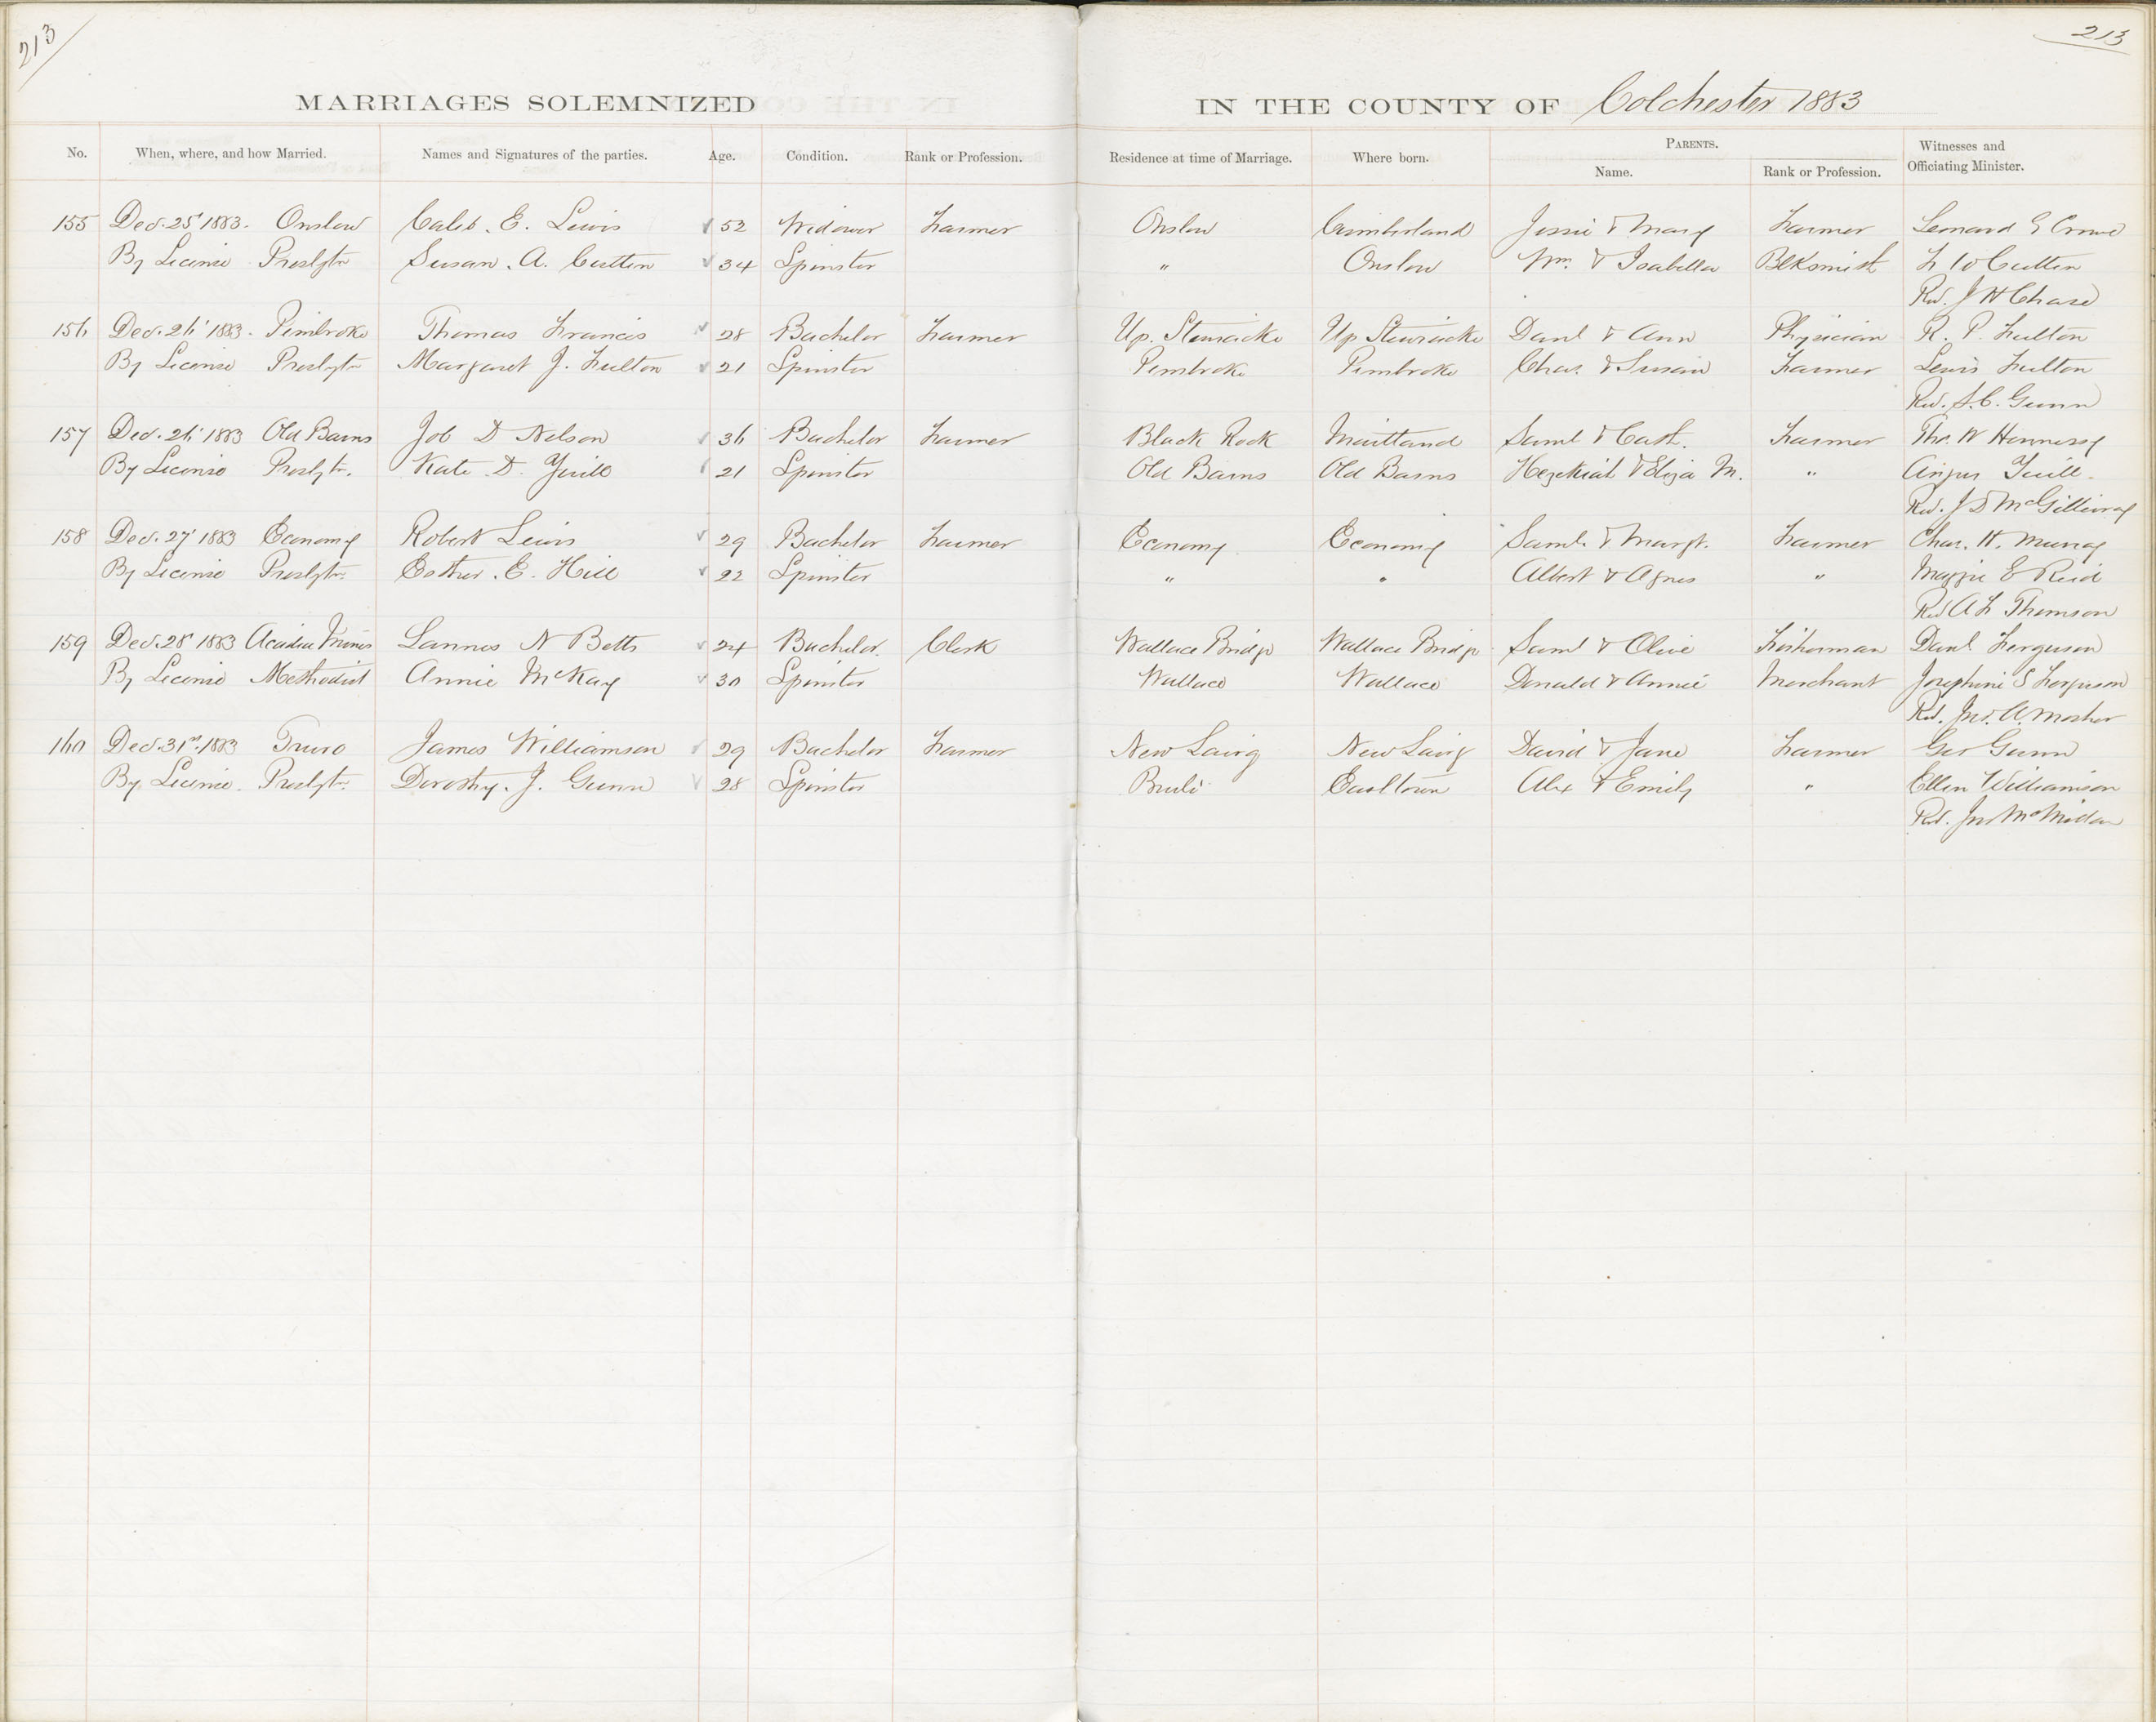 213
213
MARRIAGES SOLEMNIZED IN THE COUNTY OF Colchester 1883
No. When, where, and how Married. Names and Signatures of the parties. Age. Condition. Rank or Profession. Residence at time of Marriage. Where born. PARENTS. Name. Rank or Profession. Witnesses and Officiating Minister.
155 Dec. 25' 1883. Onslow Caleb. E. Lewis 52 Widower Farmer Onslow Cumberland Jessie & Mary Farmer Leonard E Crowe
By License Presbytn Susan. A. Cutten 34 Spinster " Onslow Wm. & Isabella Blksmith L W Cutten
Rev. J H Chase
156 Dec. 26' 1883. Pembroke Thomas Francis 28 Bachelor Farmer Up. Stewiacke Up Stewiacke Danl & Ann Physician R. P. Fulton
By License Presbytn Margaret J. Fulton 21 Spinster Pembroke Pembroke Chas. & Susan Farmer Lewis Fulton
Rev. S. C. Gunn
157 Dec. 26' 1883 Old Barns Job D Nelson 36 Bachelor Farmer Black Rock Maitland Saml & Cath. Farmer Tho. W Hennessy
By License Presbytn. Kate D. Yuill 21 Spinster Old Barns Old Barns Hezekiah & Eliza M. " Angus Yuill.
Rev. J D McGillivray
158 Dec. 27' 1883 Economy Robert Lewis 29 Bachelor Farmer Economy Economy Saml. & Margt. Farmer Chas. H. Murray
By License Presbytn. Esther. E. Hill 22 Spinster " " Albert & Agnes " Maggie E Reid
Rev A L Thomson
159 Dec. 28' 1883 Acadia Mines Lannes N Betts 24 Bachelor. Clerk Wallace Bridge Wallace Bridge Saml & Olive Fisherman Danl Ferguson
By License Methodist Annie McKay 30 Spinster Wallace Wallace Donald & Annie Merchant Josephine S Ferguson
Rev. Jno. A. Mosher
160 Dec. 31st 1883 Truro James Williamson 29 Bachelor Farmer New Lairg New Lairg David & Jane Farmer Geo Gunn
By License. Presbytn. Dorothy. J. Gunn 28 Spinster Brule Earltown Alex & Emily " Ellen Williamson
Rev. Jno McMillan